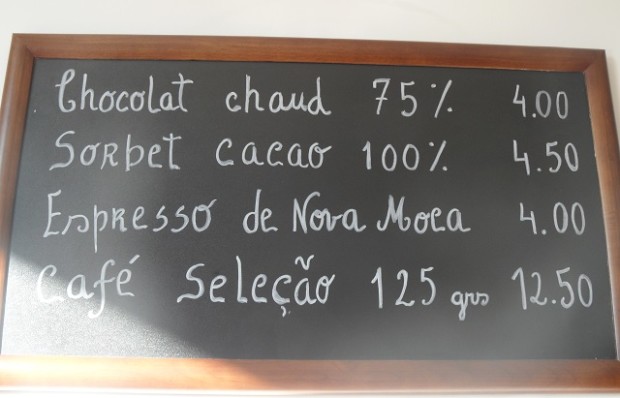 Chocolat chaud 75% 4.00
Sorbet cacao 100% 4.50
Espresso de Nova Moca 4.00
Café Seleção 125 grs 12.50